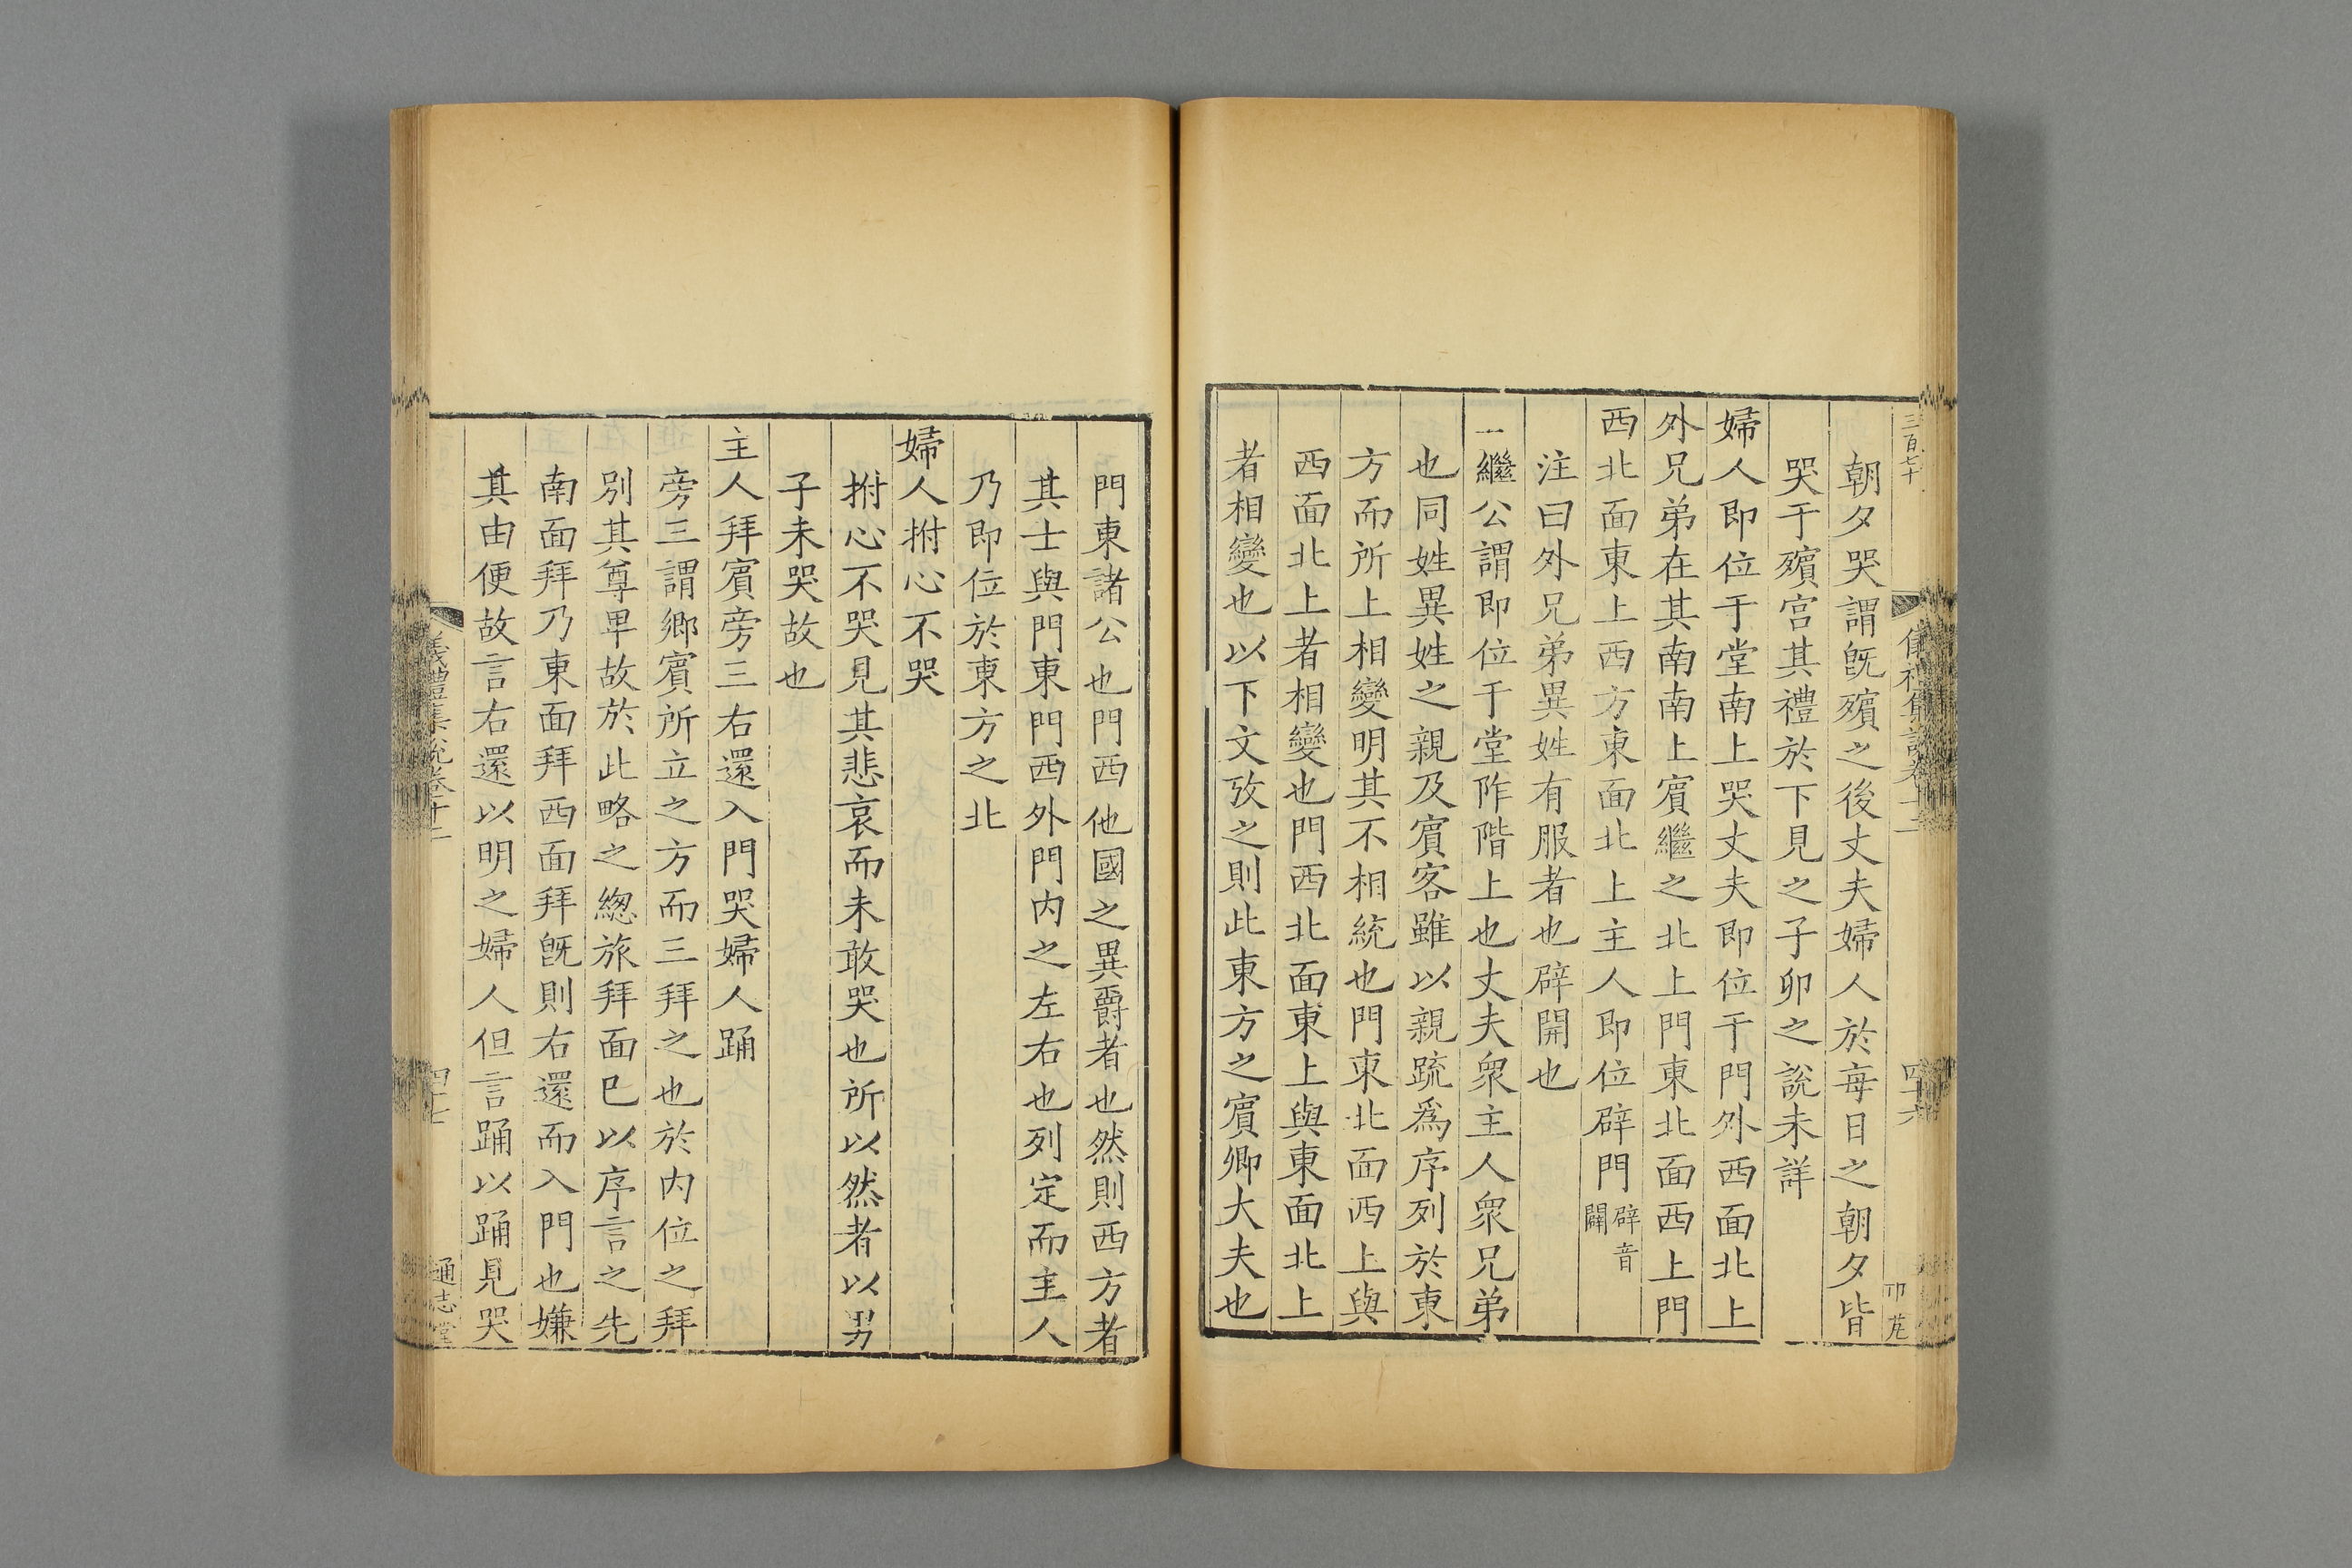 三百七十
朝夕哭謂旣殯之後丈夫婦人於每日之朝夕皆
哭于殯宫其禮於下見之子卯之說未詳
婦人即位于堂南上哭丈夫即位于門外西面北上
外兄弟在其南南上賓繼之北上門東北面西上門
西北面東上西方東面北上主人即位辟門辟音闢
注曰外兄弟異姓有服者也辟開也
繼公謂即位于堂阼階上也丈夫衆主人衆兄弟
也同姓異姓之親及賓客雖以親疏爲序列於東
方而所上相變明其不相統也門東北面西上與
西面北上者相變也門西北面東上與東面北上
者相變也以下文攷之則此東方之賓卿大夫也
門東諸公也門西他國之異爵者也然則西方者
其士與門東門西外門内之左右也列定而主人
乃即位於東方之北
婦人拊心不哭
拊心不哭見其悲哀而未敢哭也所以然者以男
子未哭故也
主人拜賓旁三右還入門哭婦人踊
旁三謂鄉賓所立之方而三拜之也於内位之拜
別其尊卑故於此略之緫旅拜面巳以序言之先
南面拜乃東面拜西面拜旣則右還而入門也嫌
其由便故言右還以明之婦人但言踊以踊見哭
儀禮集說卷十二
通志堂